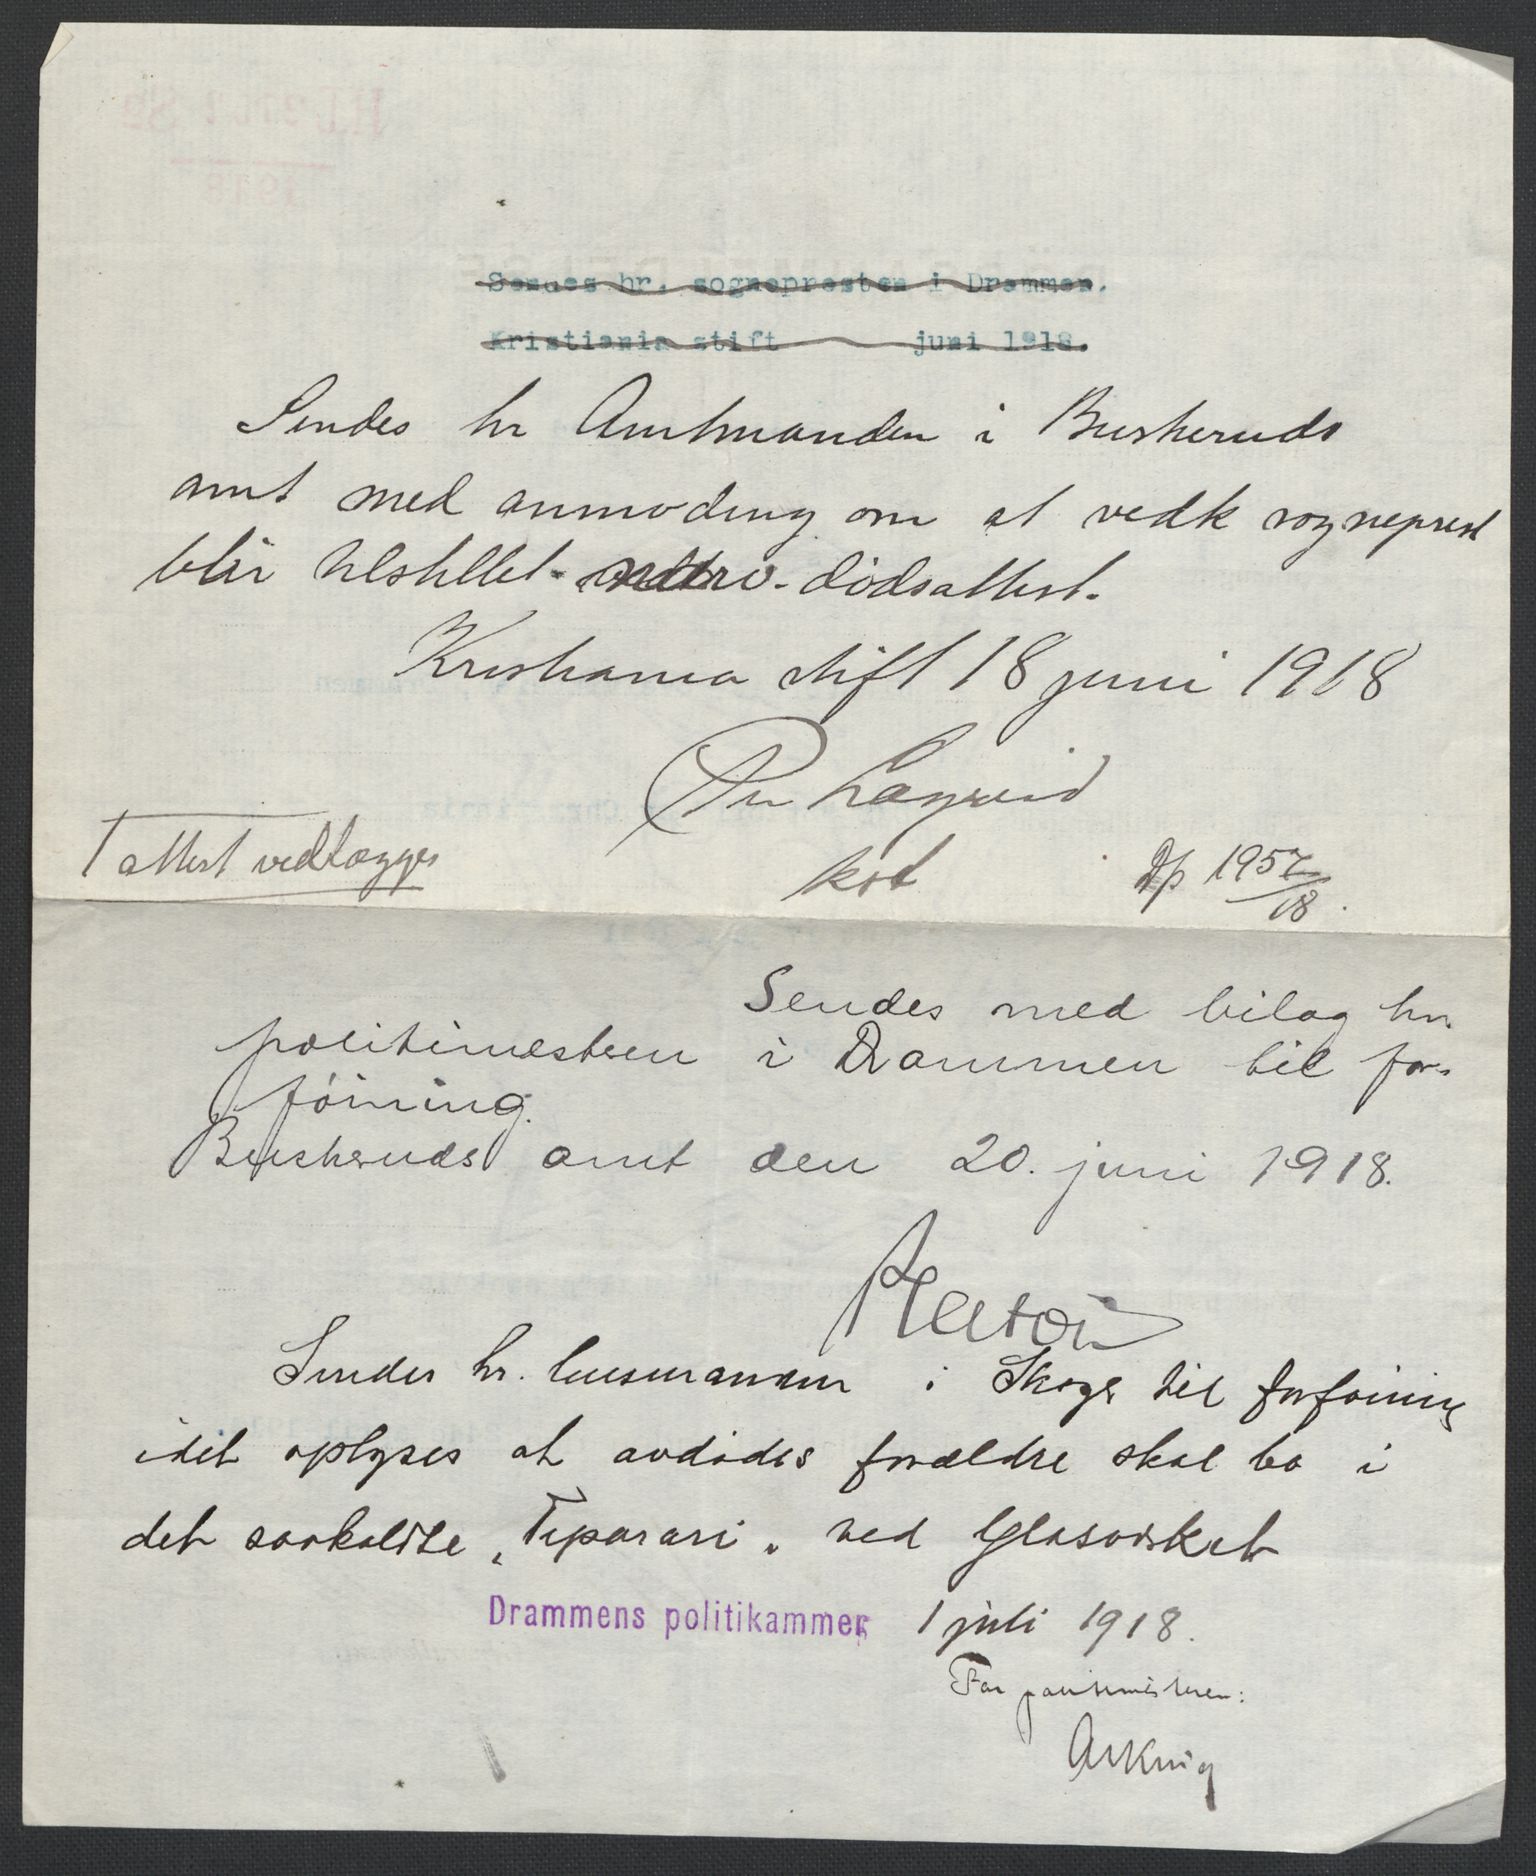 Sendes hr. sognepresten i Drammen.
Kristiania stift juni 1918.
Sendes hr Amtmanden i Buskeruds
amt med anmodning om at vedk sogneprest
blir tilstillet dödsattest.
Kristiania stift 18 juni 1918
1 attest vedlægges
Dp 1957/18.
Sendes med bilag hr.
politimesteren i Drammen til for-
föining.
Buskeruds amt den 20. juni 1918.
Sendes hr. lensmanden i Skoger til forföining
idet oplyses at avdödes forældre skal bo i
det saakaldte „Tiparari„ ved Glasverket
Drammens politikammer 1 juli 1918.
For politimesteren: